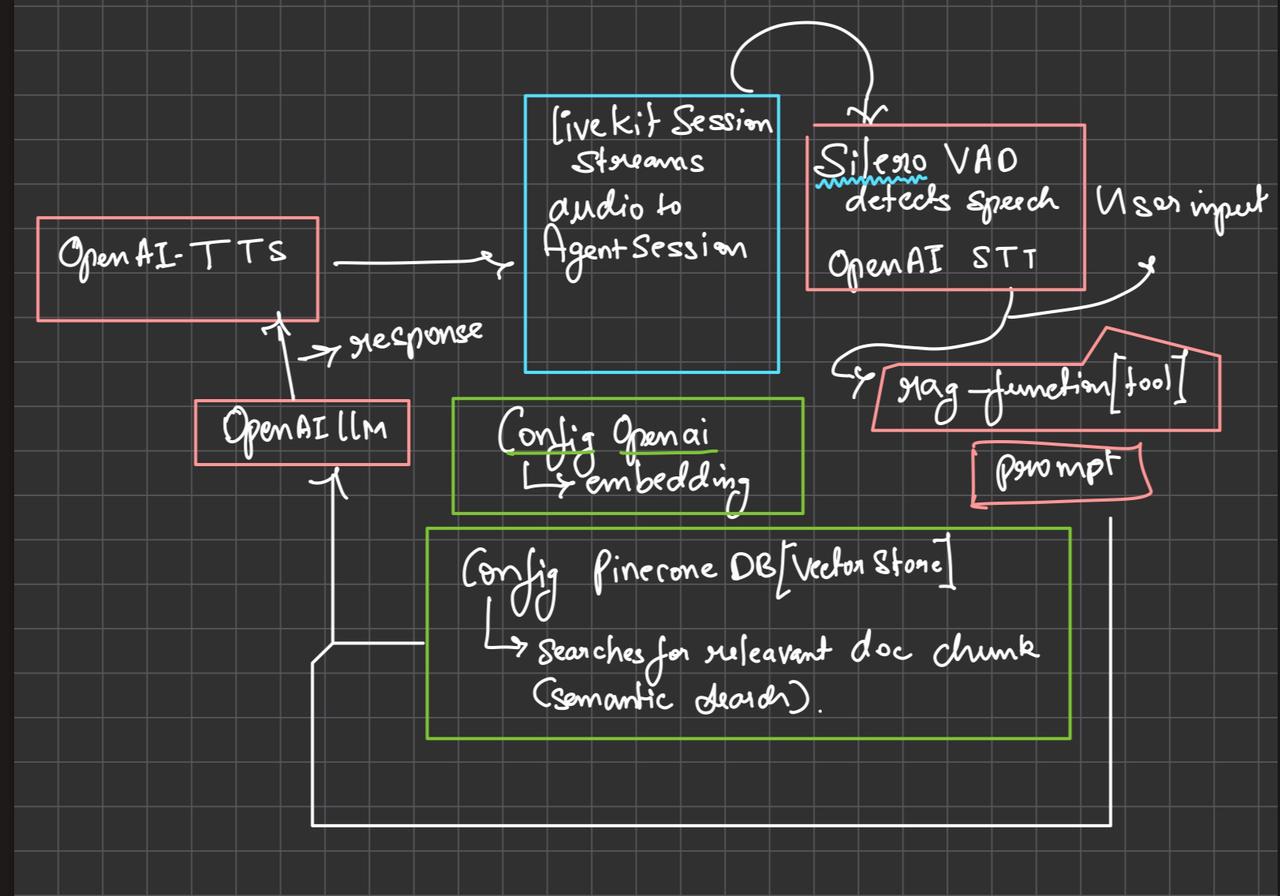 Livekit Session
Streams
audio to
Agent Session
Silero VAD
detects speech
OpenAI STT
User input
OpenAI-TTS
response
rag-function[tool]
OpenAI llm
Config Openai
embedding
prompt
Config Pinecone DB[Vector Store]
Searches for releavant doc chunk
(semantic search).